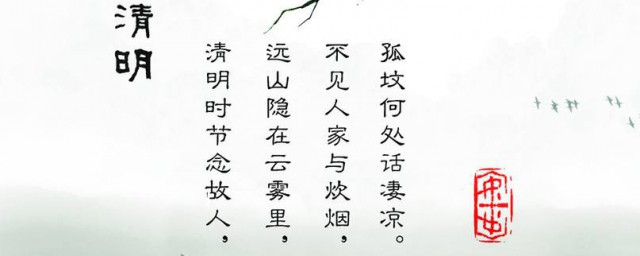 清明
清明时节念故人，
远山隐在云雾里，
不见人家与炊烟，
孤坟何处话凄凉。